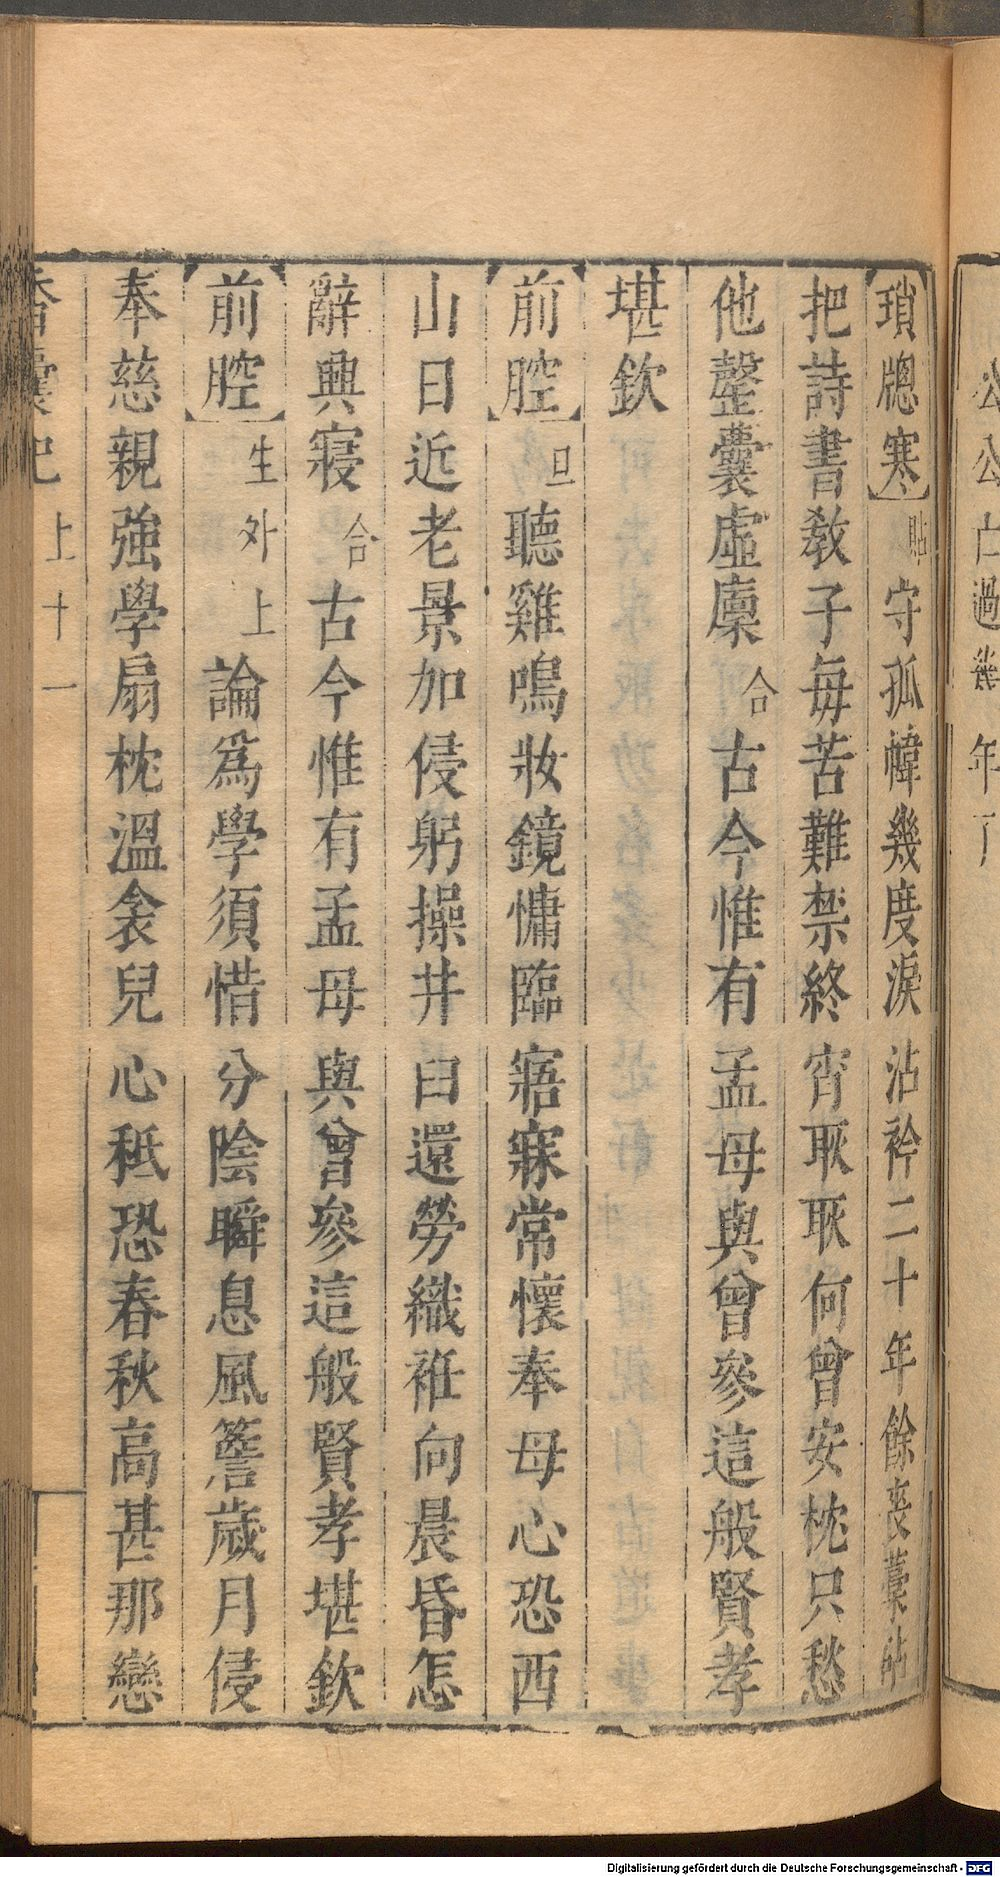 【瑣牕寒】貼守孤幃幾度淚沾衿二十年餘喪藁砧
把詩書教子毎苦難禁終宵耿耿何曾安枕只愁
他罄囊虛廩合古今惟有孟母與曾參這般賢孝
堪欽
【前腔】旦聽雞鳴妝鏡慵臨寤寐常懷奉母心恐西
山日近老景加侵躬操井臼還勞織袵向晨昏怎
辭興寢合古今惟有孟母與曾參這般賢孝堪欽
【前腔】生外上論爲學須惜分陰瞬息風簷歲月侵
奉慈親強學扇枕溫衾兒心秪恐春秋高甚那戀
香囊記 上 十一
公公亡過幾年了
Digitalisierung gefördert durch die Deutsche Forschungsgemeinschaft - DFG